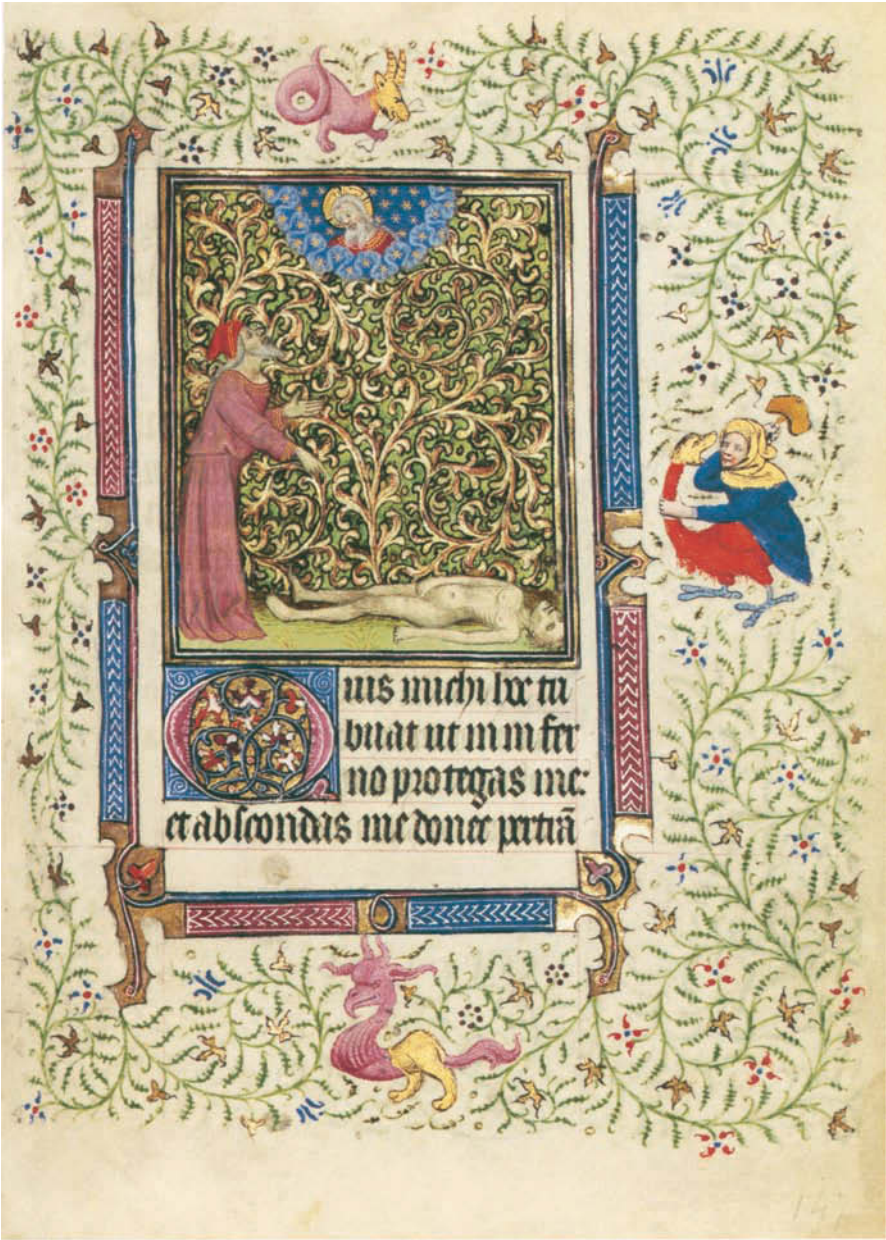 Quis michi hoc tri
buat ut in in fer
no protegas me:
et abscondas me donec pertrā